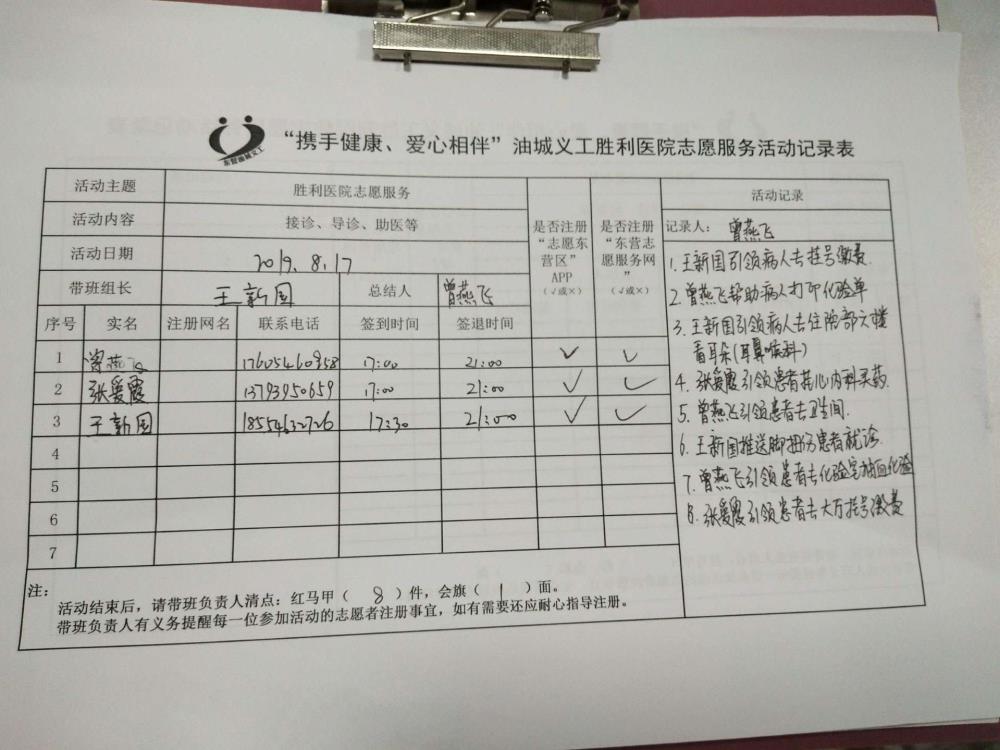 东营油城义工
“携手健康、爱心相伴”油城义工胜利医院志愿服务活动记录表
活动主题 胜利医院志愿服务
活动内容 接诊、导诊、助医等
活动日期 2019.8.17
带班组长 王新国 总结人 曾燕飞
是否注册“志愿东营区”APP（√或×）
是否注册“东营志愿服务网”（√或×）
序号 实名 注册网名 联系电话 签到时间 签退时间
1 曾燕飞 17605460958 17:00 21:00 √ √
2 张爱霞 13793950659 17:00 21:00 √ √
3 王新国 18554632726 17:30 21:00 √ √
4
5
6
7
活动记录
记录人： 曾燕飞
1.王新国引领病人去挂号缴费.
2.曾燕飞帮助病人打印化验单
3.王新国引领病人去住院部六楼
看耳朵(耳鼻喉科)
4.张爱霞引领患者找心内科买药.
5.曾燕飞引领患者去卫生间.
6.王新国推送脚扭伤患者就诊.
7.曾燕飞引领患者去化验室抽血化验
8.张爱霞引领患者去大厅挂号缴费
注：
活动结束后，请带班负责人清点：红马甲（ 8 ）件，会旗（ 1 ）面。
带班负责人有义务提醒每一位参加活动的志愿者注册事宜，如有需要还应耐心指导注册。